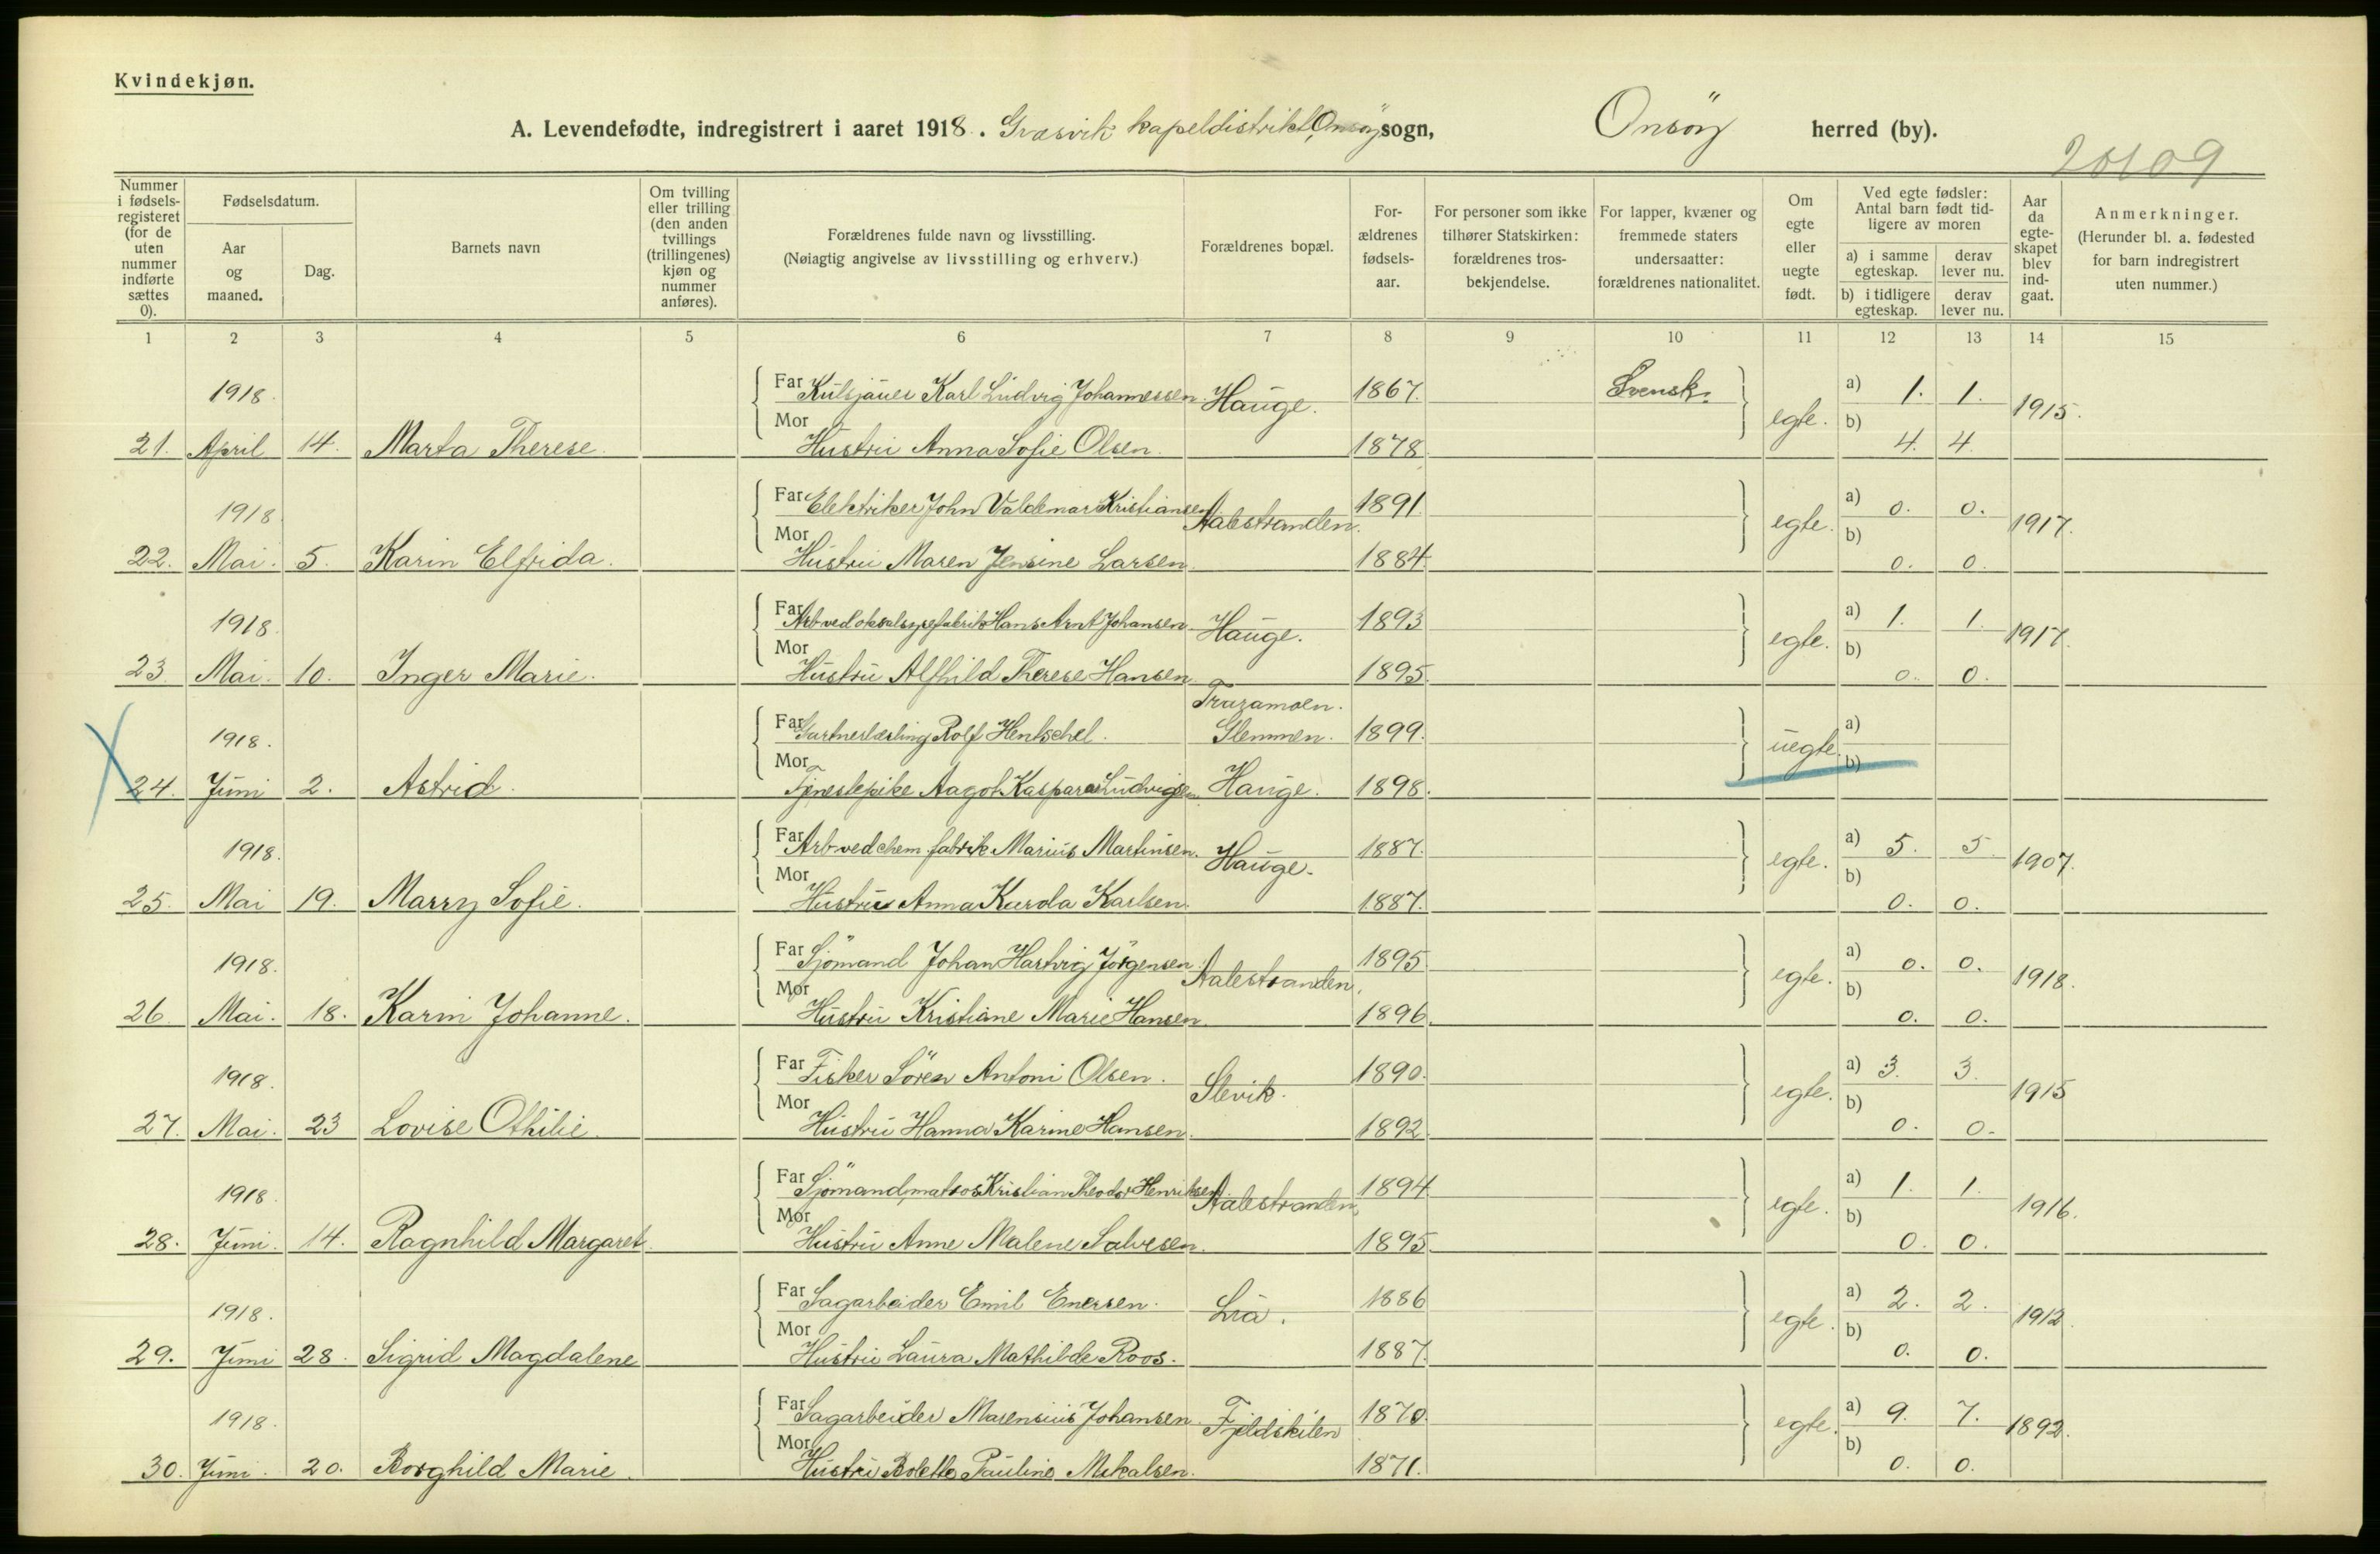 Kvindekjøn.
A. Levendefødte, indregistrert i aaret 1918. Græsvik kapeldistrikt, Onsöy sogn, Onsöy herred (by).
20109
Nummer i fødselsregisteret (for de uten nummer indførte sættes 0).
Fødselsdatum.
Aar og maaned.
Dag.
Barnets navn
Om tvilling eller trilling (den anden tvillings (trillingenes) kjøn og nummer anføres).
Forældrenes fulde navn og livsstilling.
(Nøiagtig angivelse av livsstilling og erhverv.)
Forældrenes bopæl.
Forældrenes fødselsaar.
For personer som ikke tilhører Statskirken: forældrenes trosbekjendelse.
For lapper, kvæner og fremmede staters undersaatter: forældrenes nationalitet.
Om egte eller uegte født.
Ved egte fødsler: Antal barn født tidligere av moren
a) i samme egteskap.
derav lever nu.
b) i tidligere egteskap.
derav lever nu.
Aar da egteskapet blev indgaat.
Anmerkninger.
(Herunder bl. a. fødested for barn indregistrert uten nummer.)
1 2 3 4 5 6 7 8 9 10 11 12 13 14 15
1918. Far Kulsjauer Karl Ludvig Johannessen. Hauge. 1867. Svensk. egte. a) 1. 1. 1915.
21. April 14. Marta Therese. Mor Hustru Anna Sofie Olsen. 1878 b) 4. 4.
1918 Far Elektriker John Valdemar Kristiansen Aalestranden. 1891 egte. a) 0. 0. 1917.
22. Mai. 5. Karin Elfrida. Mor Hustru Maren Jensine Larsen. 1884. b) 0. 0.
1918. Far Arb ved oksalsyrefabrik Hans Arnt Johansen. Hauge. 1893 egte. a) 1. 1. 1917.
23. Mai. 10. Inger Marie. Mor Hustru Alfhild Therese Hansen. 1895. b) 0. 0.
1918. Far Gartnerlærling Rolf Hentschel. Glemmen. 1899. uegte. a)
24. Juni 2. Astrid. Mor Tjenestepike Aagot Kaspara Ludvigsen. Hauge. 1898. b)
1918. Far Arb ved chem. fabrik Marius Martinsen. Hauge. 1887. egte. a) 5. 5 1907.
25. Mai 19. Marry Sofie. Mor Hustru Anna Karola Karlsen. 1887. b) 0. 0.
1918. Far Sjömand Johan Hartvig Jörgensen Aalestranden. 1895 egte. a) 0. 0. 1918.
26. Mai. 18. Karin Johanne. Mor Hustru Kristiane Marie Hansen. 1896. b) 0. 0.
1918. Far Fisker Sören Antoni Olsen. Slevik. 1890. egte. a) 3. 3. 1915
27. Mai. 23 Lovise Othilie. Mor Hustru Hanna Karine Hansen. 1892. b) 0. 0.
1918. Far Sjömand, matros Kristian Theodor Henriksen Aalestranden. 1894 egte. a) 1. 1. 1916.
28. Juni. 14. Ragnhild Margaret. Mor Hustru Anne Malene Salvesen. 1895 b) 0. 0.
1918. Far Sagarbeider Emil Enersen. Lia. 1886 egte. a) 2. 2. 1912.
29. Juni 28. Sigrid Magdalene Mor Hustru Laura Mathilde Roos. 1887. b) 0. 0.
1918. Far Sagarbeider Marensius Johansen. Fjeldskilen 1870. egte. a) 9. 7. 1892.
30. Juni. 20. Borghild Marie. Mor Hustru Bolette Pauline Mikalsen. 1871. b) 0. 0.